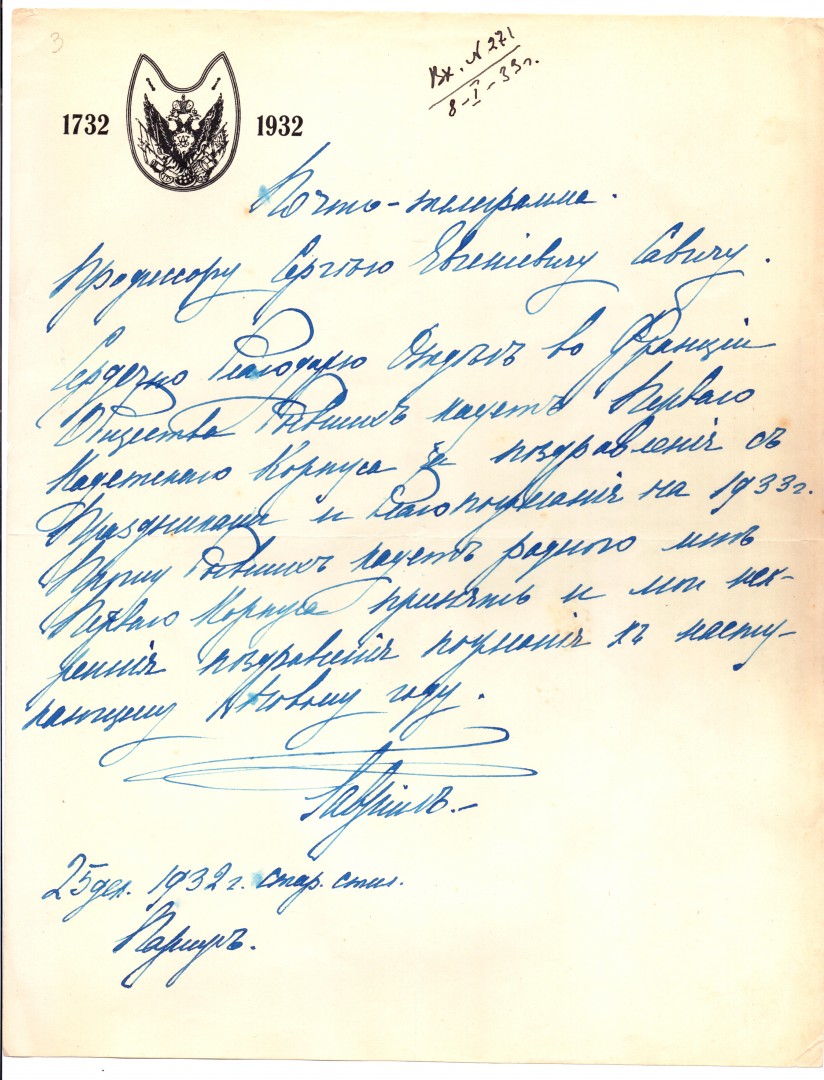 3
Вх. № 271
8-I-33г.
1732 1932
Почто-телеграмма.
Профессору Сергѣю Евгеніевичу Савичу.
Сердечно благодарю Отдѣлъ во Франціи
Общества бывшихъ кадетъ Перваго
Кадетскаго Корпуса за поздравленія съ
Праздниками и благопожеланія на 1933г.
Прошу бывшихъ кадетъ родного мнѣ
Перваго Корпуса принять и мои иск-
ренніи поздравленія пожеланія къ насту-
пающему Новому году.
Гавріилъ.-
25 дек. 1932 г. стар. стил.
Парижъ.